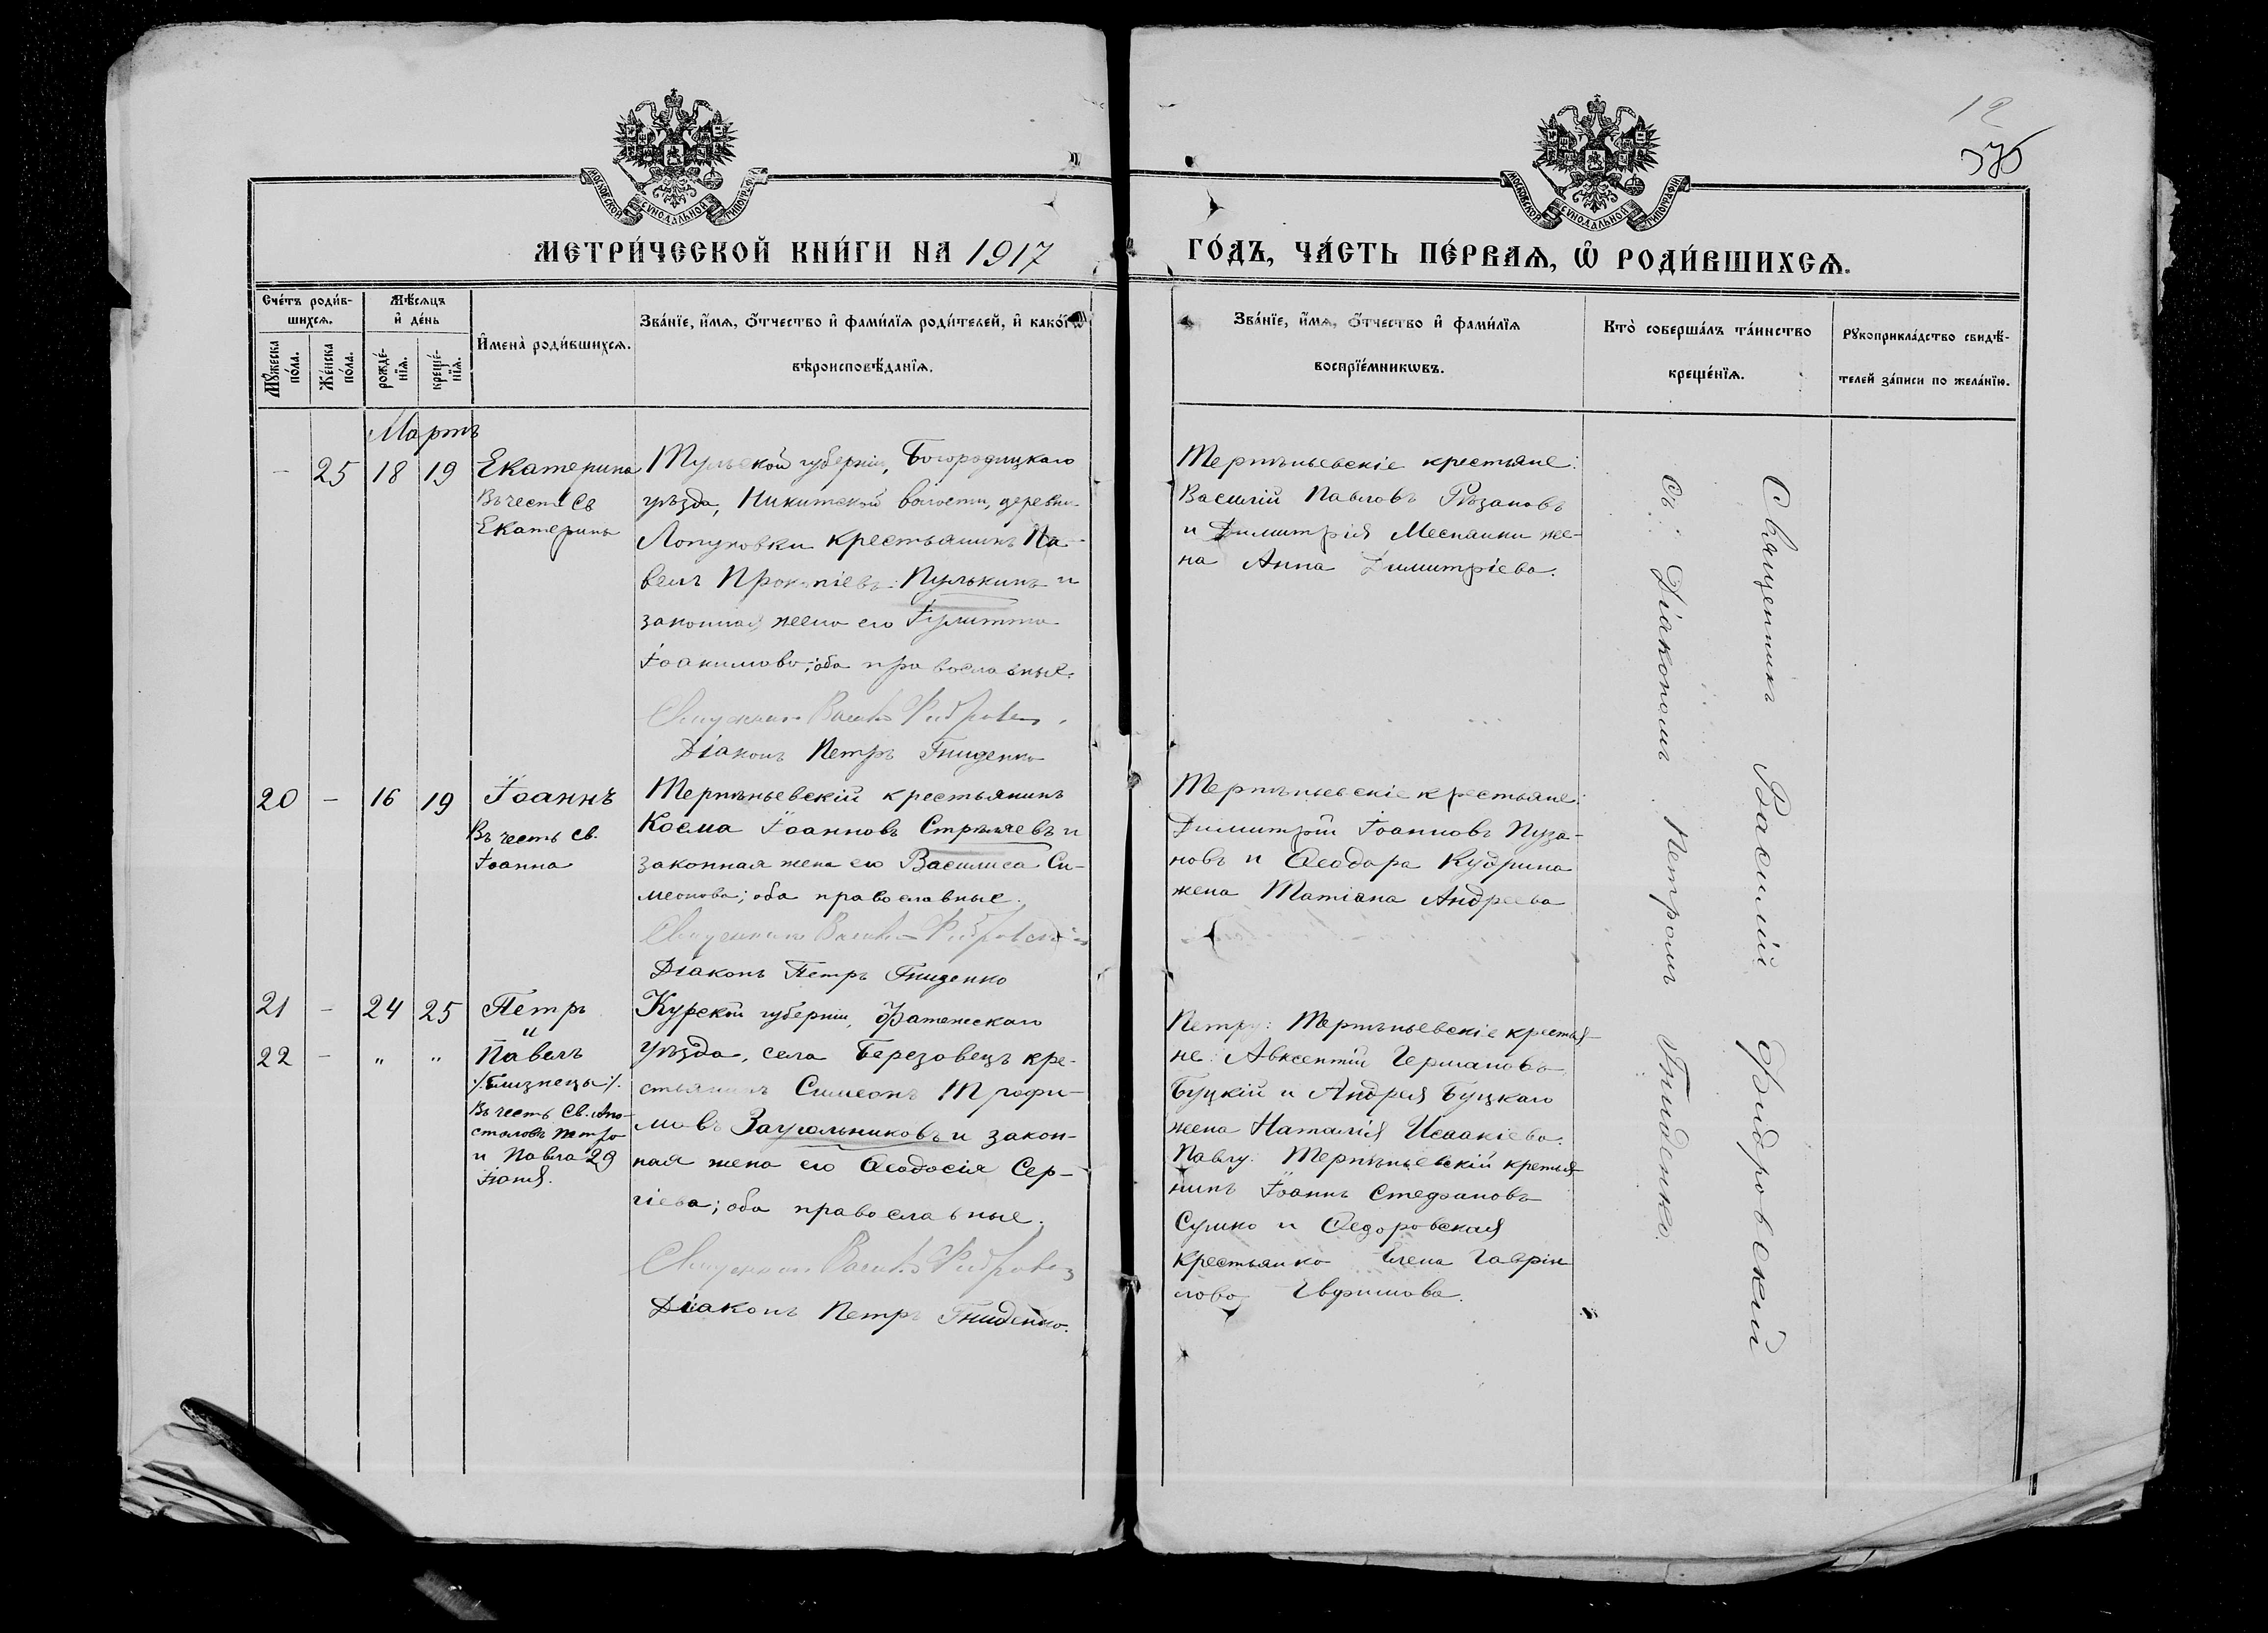 12
375
МОСКОВСКОЙ СѴНОДАЛЬНОЙ ТИПОГРАФІИ
МОСКОВСКОЙ СѴНОДАЛЬНОЙ ТИПОГРАФІИ
МЕТРИ́ЧЕСКОЙ КНИ́ГИ НА 1917
ГО́ДЪ, ЧА́СТЬ ПЕ́РВАѦ, Ѡ҆ РОДИ́ВШИХСѦ.
Сче́тъ роди́в-
шихсѧ.
Мꙋ́жеска по́ла.
Же́нска по́ла.
Мѣ́сѧцъ
и҆ де́нь
рожде́-
нїѧ.
креще́-
нїѧ.
И҆мена̀ роди́вшихсѧ.
Зва́нїе, и҆́мѧ, ѻ҆́тчество и҆ фами́лїѧ роди́телей, и҆ како́гѡ
вѣроисповѣ́данїѧ.
Зва́нїе, и҆́мѧ, ѻ҆́тчество и҆ фами́лїѧ
воспрїе́мникѡвъ.
Кто̀ соверша́лъ та́инство
креще́нїѧ.
Рꙋкоприкла́дство свидѣ́-
телей за́писи по жела́нїю.
Мартъ
— 25 18 19
Екатерина
Въ честь Св
Екатерины
Тульской губерніи, Богородицкаго
уѣзда, Никитской волости, деревни
Лопуховки крестьянинъ Па-
велъ Прокопіевъ Пулькинъ и
законная жена его Іулитта
Іоакимова; оба православные.
Священникъ Василій Фидровскій
Діаконъ Петръ Гниденко
Терпѣньевскіе крестьяне:
Василій Павловъ Рѣзановъ
и Димитрія Меснянки же-
на Анна Димитріева.
20 — 16 19
Іоаннъ
Въ честь Св.
Іоанна
Терпѣньевскій крестьянинъ
Косма Іоанновъ Стрѣляевъ и
законная жена его Василиса Си-
меонова; оба православные.
Священникъ Василій Фидровскій
Діаконъ Петръ Гниденко
Терпѣньевскіе крестьяне:
Димитрій Іоанновъ Пуза-
новъ и Ѳеодора Кудрина
жена Татіана Андреева
21 — 24 25
Петръ
и
22 — " "
Павелъ
/. близнецы /.
Въ честь Св. Апо-
столовъ Петра
и Павла 29
Іюня.
Курской губерніи, Фатежскаго
уѣзда, села Березовецъ кре-
стьянинъ Симеонъ Трофи-
мовъ Заугольниковъ и закон-
ная жена его Ѳеодосія Сер-
гіева; оба православные.
Священникъ Василій Фидровскій
Діаконъ Петръ Гниденко.
Петру: Терпѣньевскіе крестья-
не: Авксентій Германовъ
Буцкій и Андрея Буцкаго
жена Наталія Исаакіева.
Павлу: Терпѣньевскій крестья-
нинъ Іоаннъ Стефановъ
Сушко и Ѳедоровская
крестьянка Елена Гаврiи-
лова Евфимова.
Священникъ Василій Фидровскій
съ Діакономъ Петромъ Гниденко.